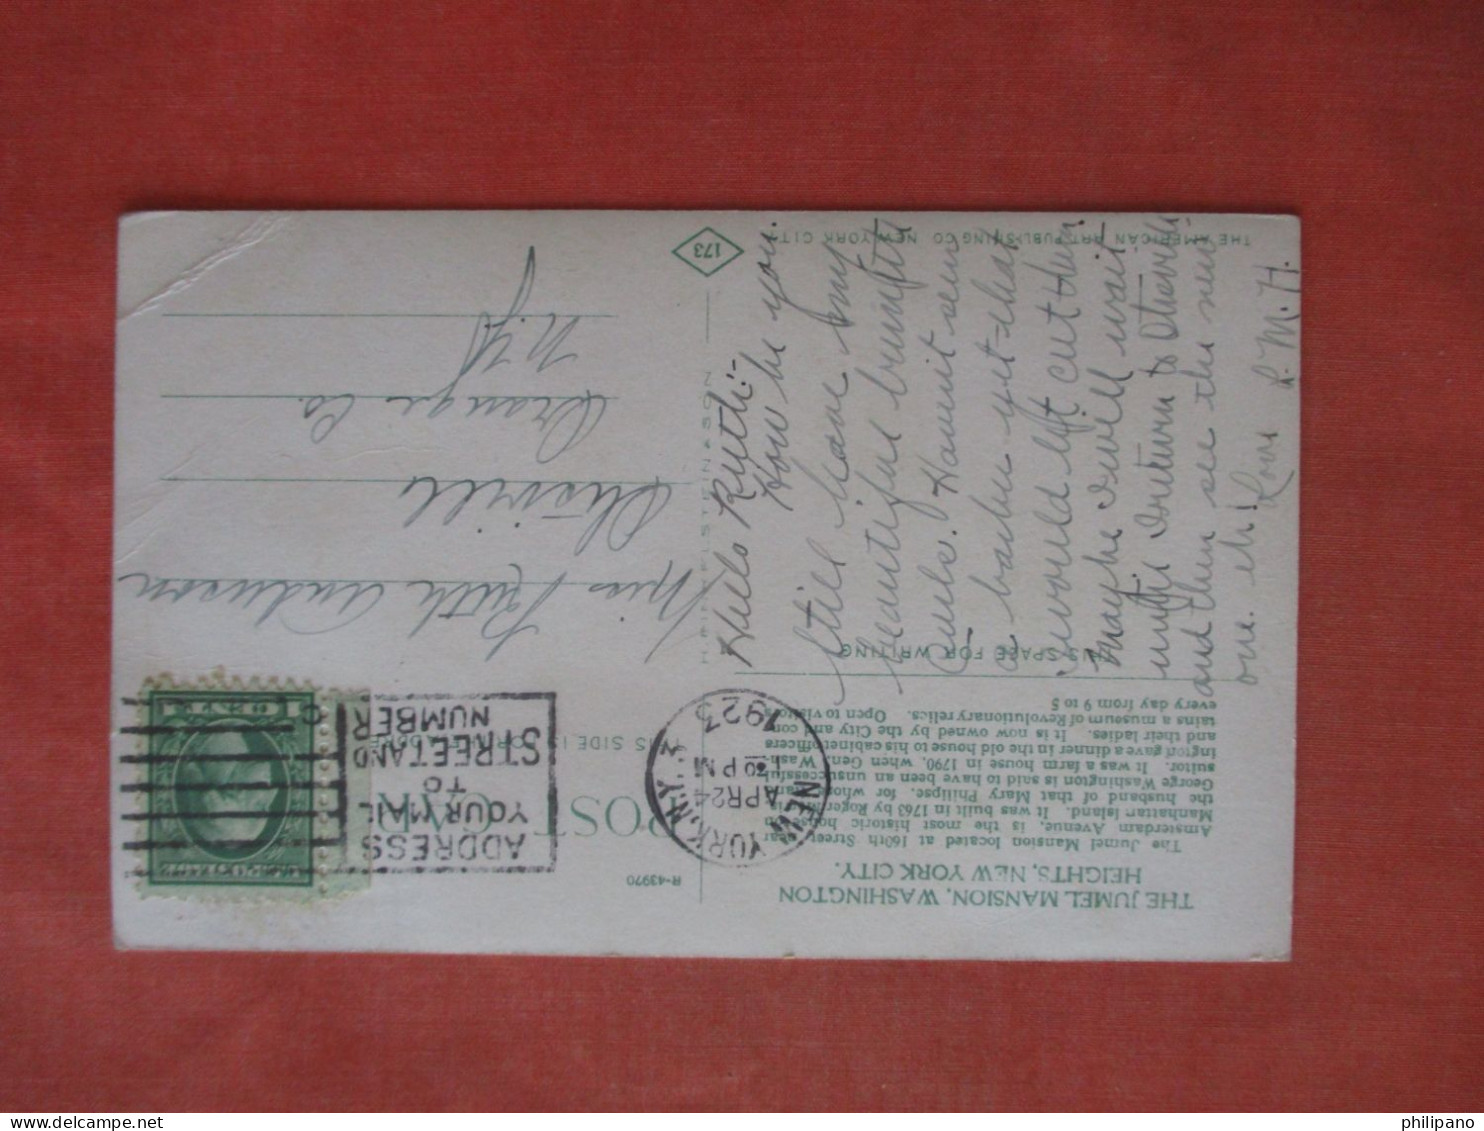 THE JUMEL MANSION, WASHINGTON
HEIGHTS, NEW YORK CITY.
The Jumel Mansion located at 160th Street near
Amsterdam Avenue, is the most historic house on
Manhattan Island. It was built in 1763 by Roger Morris
the husband of that Mary Philipse, for whose hand
George Washington is said to have been an unsuccessful
suitor. It was a farm house in 1790, when Gen. Wash-
ington gave a dinner in the old house to his cabinet officers
and their ladies. It is now owned by the City and con-
tains a museum of Revolutionary relics. Open to visitors
every day from 9 to 5
THIS SPACE FOR WRITING
Hello Ruth:-
How be you.
Still have my
beautiful
curls. Haven't seen
a barber yet - that
would cut them
maybe I will wait
until I return to Otisville
and then see the new
one. eh!
Love L. M. H.
THE AMERICAN ART PUBLISHING CO NEW YORK CITY
H. FINKELSTEIN & SON
173
R-43970
POST CARD
THIS SIDE IS FOR THE ADDRESS
NEW YORK, N.Y. 3
APR 24
1 30 PM
1923
ADDRESS
YOUR MAIL
TO
STREET AND
NUMBER
Miss Ruth Anderson
Otisville
Orange Co.
N.Y.
philipano